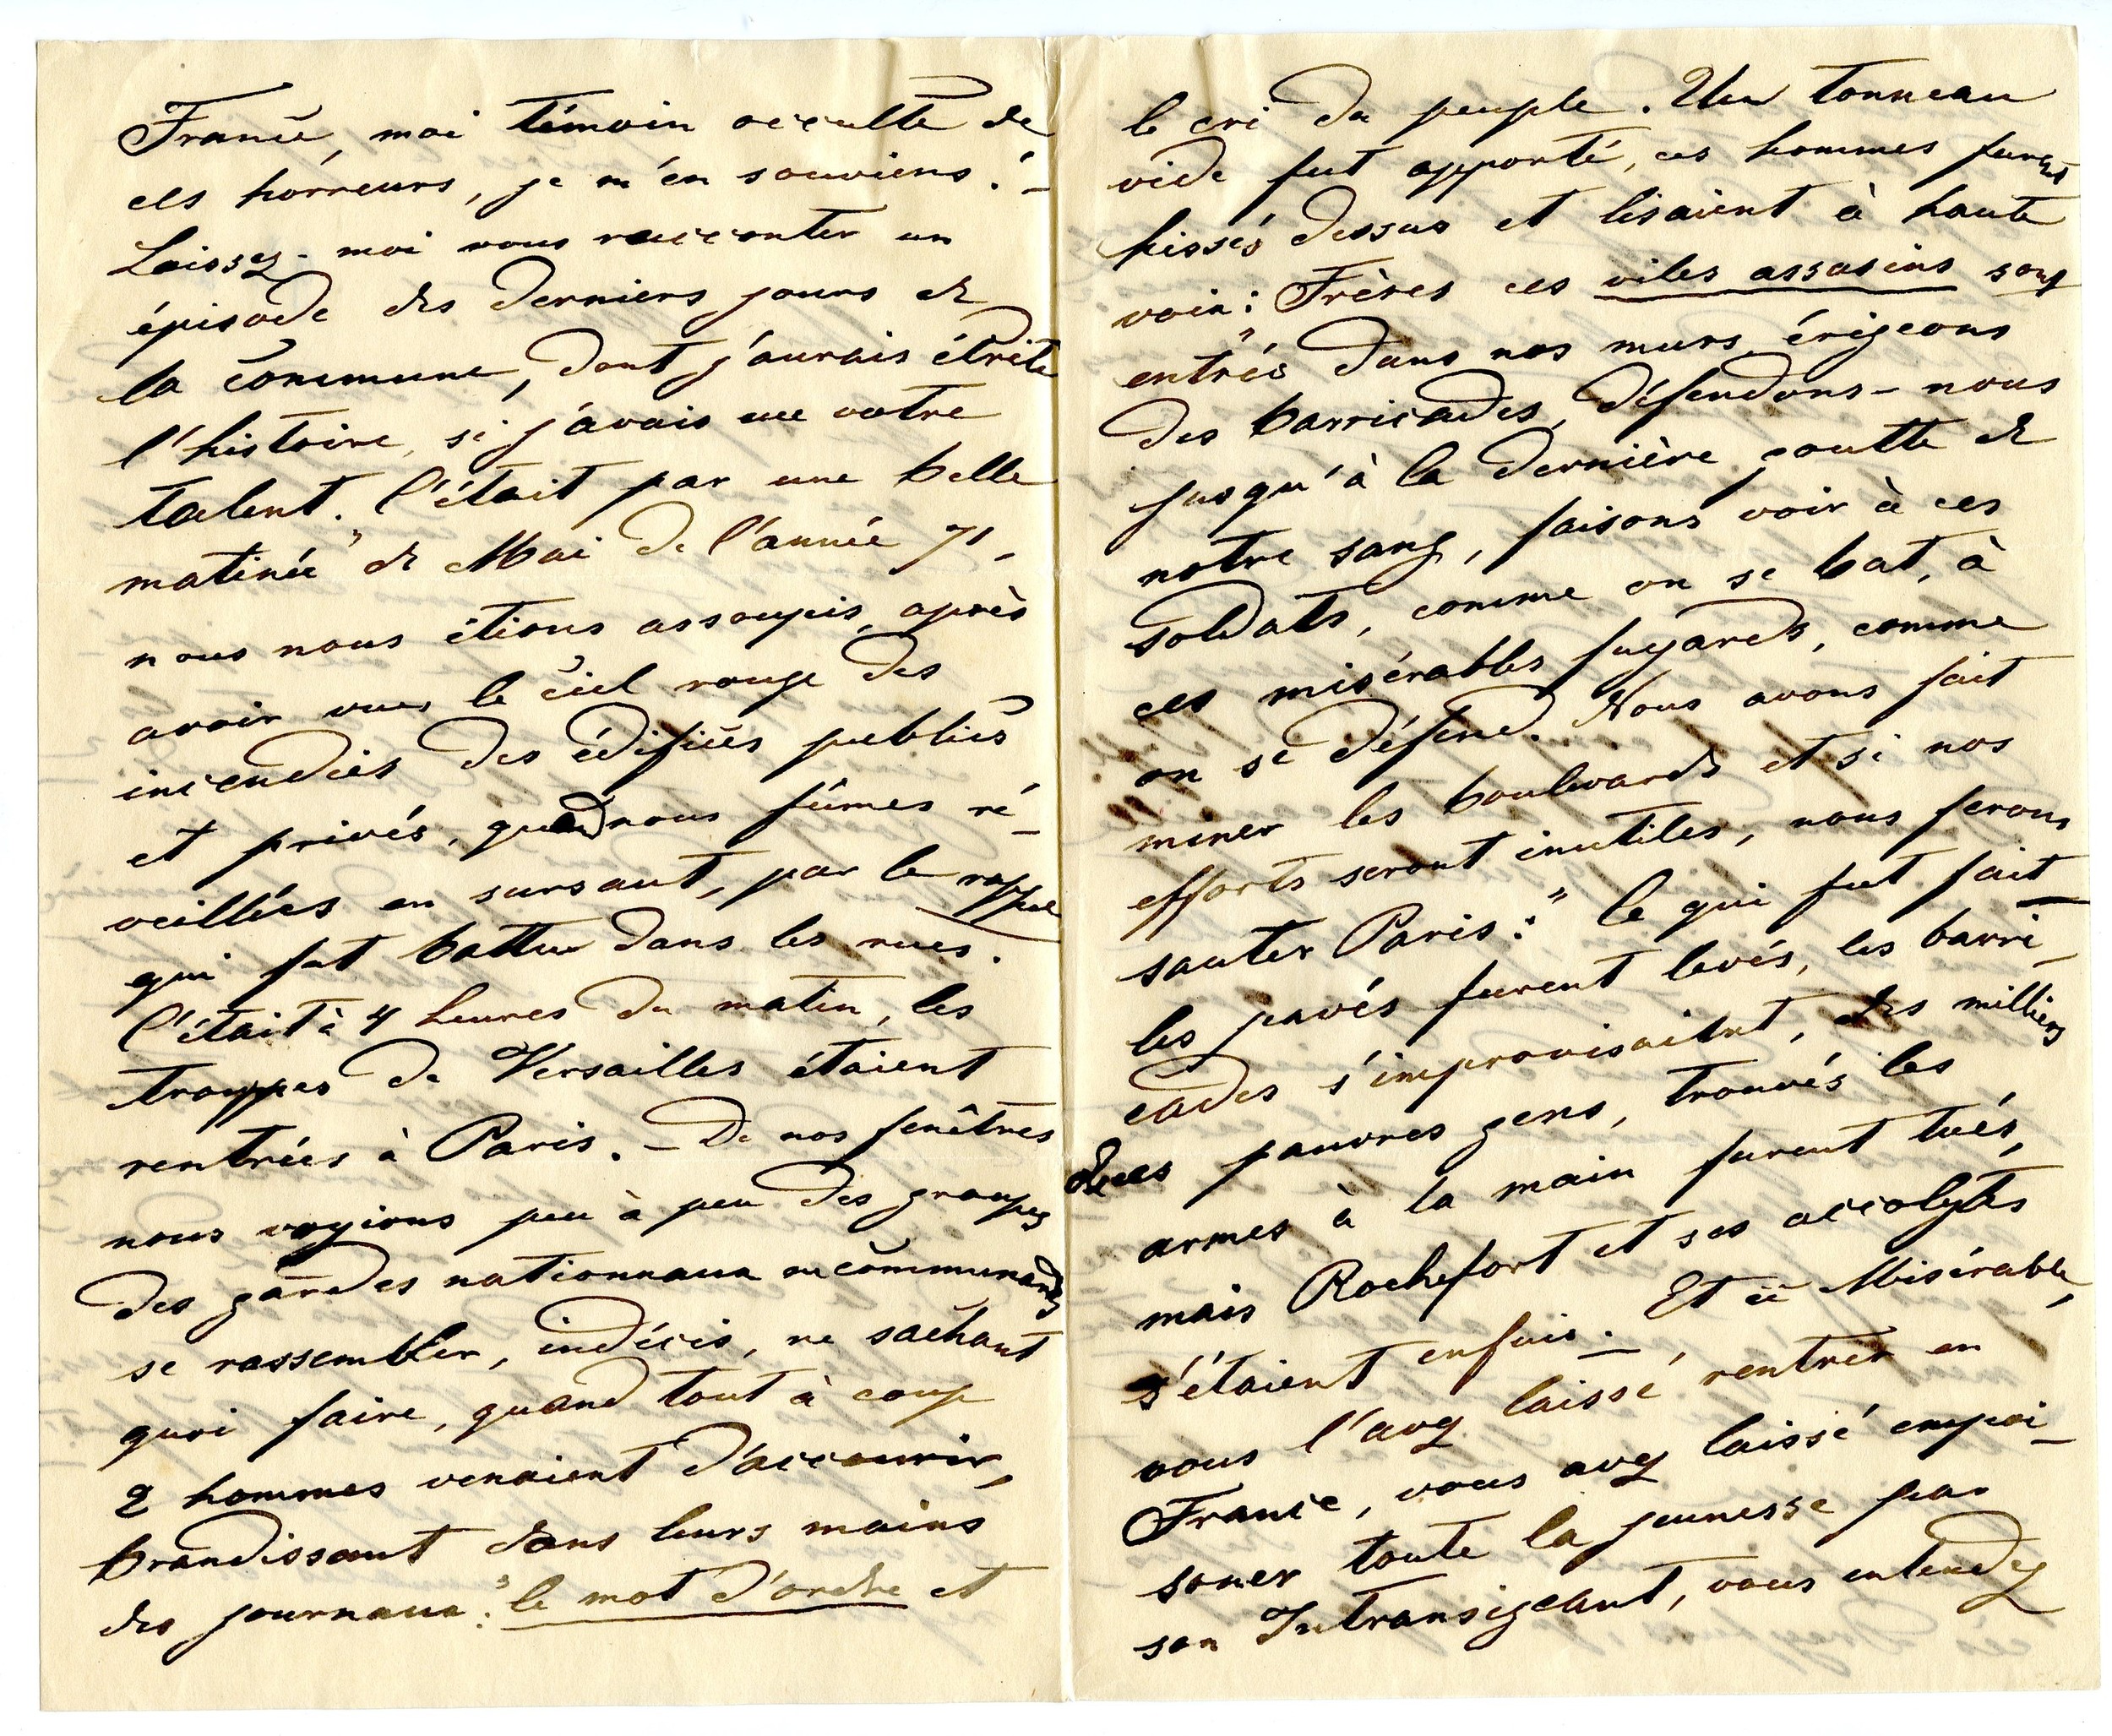 France, moi témoin occulte de
ces horreurs, je m'en souviens! –
Laissez-moi vous racconter un
épisode des derniers jours de
la commune, dont j'aurais écrite
l'histoire, si j'avais eue votre
talent. C'était par une belle
matinée de Mai de l'année 71,
nous nous étions assoupis, après
avoir vues le ciel rouge des
incendies des édifices publics
et privés, quand nous fûmes ré-
veillées en sursaut, par le rappel
qui fut battue dans les rues.
C'était à 4 heures du matin, les
trouppes de Versailles étaient
rentrées à Paris. – De nos fenêtres
nous voyions peu à peu des groupes
des gardes nationnaux ou communards
se rassembler, indécis, ne sachant
quoi faire, quand tout à coup
2 hommes venaient d'accourir,
brandissant dans leurs mains
des journaux: "le mot d'ordre et
le cri du peuple. Un tonneau
vide fut apporté, ces hommes furent
hissés dessus et lisaient à haute
voix: Frères ces viles assasins sont
"entrés dans nos murs, érigeons
des barricades, défendons-nous
jusqu'à la dernière goutte de
notre sang, faisons voir à ces
soldats, comme on se bat, à
ces misérables fuyards, comme
on se défend. Nous avons fait
miner les boulevards et si nos
efforts seront inutiles, nous ferons
sauter Paris:" Ce qui fut fait
les pavés furent levés, les barri-
cades s'improvisaient, des milliers
de ces pauvres gens, trouvés les
armes à la main furent tués,
mais Rochefort et ses accolytes
s'étaient enfuis. Et ce Misérable,
vous l'avez laissé rentrer en
France, vous avez laissé empoi-
soner toute la jeunesse par
son Intransigeant, vous entendez